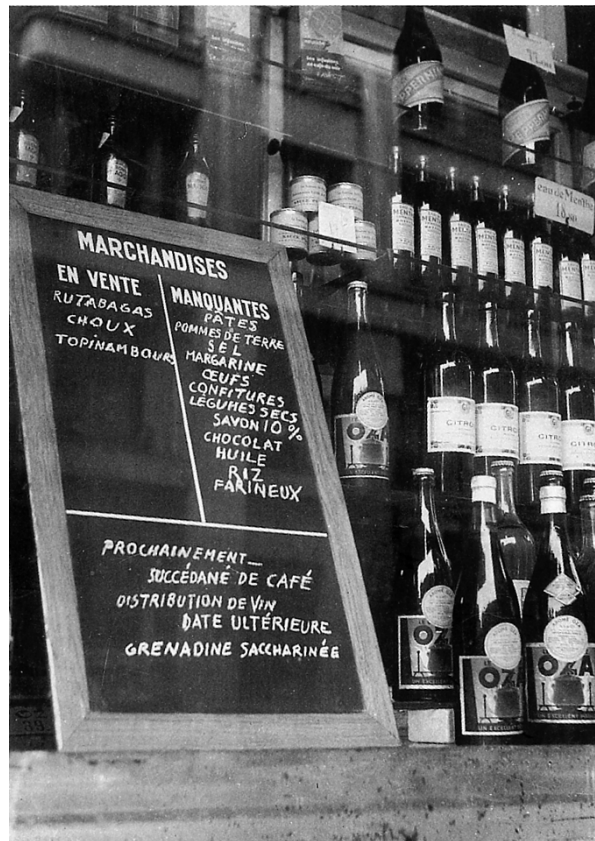 MARCHANDISES
EN VENTE
RUTABAGAS
CHOUX
TOPINAMBOURS
MANQUANTES
PÂTES
POMMES DE TERRE
SEL
MARGARINE
ŒUFS
CONFITURES
LÉGUMES SECS
SAVON 10 %
CHOCOLAT
HUILE
RIZ
FARINEUX
PROCHAINEMENT___
SUCCÉDANÉ DE CAFÉ
DISTRIBUTION DE VIN
DATE ULTÉRIEURE
GRENADINE SACCHARINÉE
eau de Menthe
CITRO
CITRO
CITRO
CITRO
OZA
OZA
UN EXCELLENT
OZA
UN EXCELLENT
OZA
UN EXCELLENT